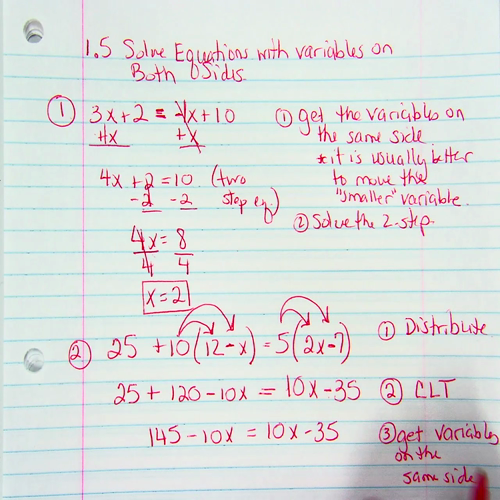 1.5 Solve Equations with variables on
Both Sides.
① 3x+2 = -1x+10
+x +x
4x+2=10 (two
-2 -2 step eq)
4x = 8
4 4
x=2
① get the variables on
the same side
*it is usually better
to move the
"smaller" variable
② Solve the 2-step.
② 25 +10(12-x) = 5(2x-7)
① Distribute
25 + 120 - 10x = 10x - 35
② CLT
145 - 10x = 10x - 35
③ get variables
on the
same side